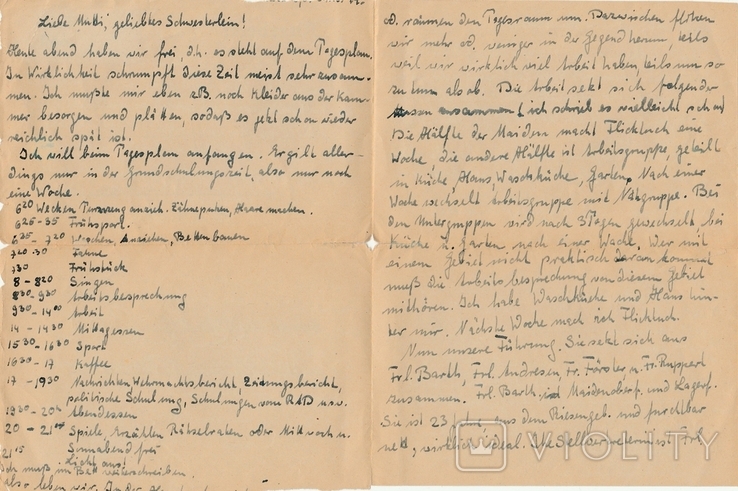 Liebe Mutti, geliebtes Schwesterlein!
Heute abend haben wir frei d.h. es steht auf dem Tagesplan.
In Wirklichkeit schrumpft diese Zeit meist sehr zusam-
men. Ich mußte mir eben z.B. noch Kleider aus der Kam-
mer besorgen und plätten, sodaß es jetzt schon wieder
reichlich spät ist.
Ich will beim Tagesplan anfangen. Er gilt aller-
dings nur in der Grundschulungszeit, also nur noch
eine Woche.
6 20 Wecken Trainzeug anzieh. Zähneputzen, Haare machen.
6 25 - 35 Frühsport.
6 35 - 7 20 Waschen, Anziehen, Betten bauen
7 20 - 30 Fahne
7 30 Frühstück
8 - 8 20 Singen
8 30 - 9 30 Arbeitsbesprechung
9 30 - 14 00 Arbeit
14 - 14 30 Mittagessen
15 30 - 16 30 Sport
16 30 - 17 Kaffee
17 - 19 30 Nachrichten, Wehrmachtsbericht Zeitungsbericht,
politische Schulung, Schulungen vom RAD u.s.w.
19 30 - 20 Abendessen
20 - 21 Spiele, Erzählen Rätselraten oder Mittwoch u.
Sonnabend frei
21 15 Licht aus!
Ich muß im Bett weiterschreiben.
also leben wir. In der
od. räumen den Tagesraum um. Dazwischen flitzen
wir mehr od. weniger in der Gegend herum, teils
weil wir wirklich viel Arbeit haben, teils um so
zu tun als ob. Die Arbeit setzt sich folgender
zusammen (ich schrieb es vielleicht schon)
Die Hälfte der Maiden macht Flicktuch eine
Woche die andere Hälfte ist Arbeitsgruppe, geteilt
in Küche, Haus, Waschküche, Garten. Nach einer
Woche wechselt Arbeitsgruppe mit Nähgruppe. Bei
den Untergruppen wird nach 3 Tagen gewechselt bei
Küche u. Garten nach einer Woche. Wer mit
einem Gebiet nicht praktisch daran kommt
muß die Arbeitsbesprechung von diesem Gebiet
mithören. Ich habe Waschküche und Haus hin-
ter mir. Nächste Woche mach ich Flicktuch.
Nun unsere Führung. Sie setzt sich aus
Frl. Barth, Frl Andresen, Fr. Förster, u. Fr. Ruppert
zusammen. Frl. Barth ist Maidenoberf. und Lagerf.
Sie ist 23 Jahre, aus dem Riesengeb. und furchtbar
nett, wirklich ideal. Ihre Stellvertreterin ist Frl.
VIOLITY